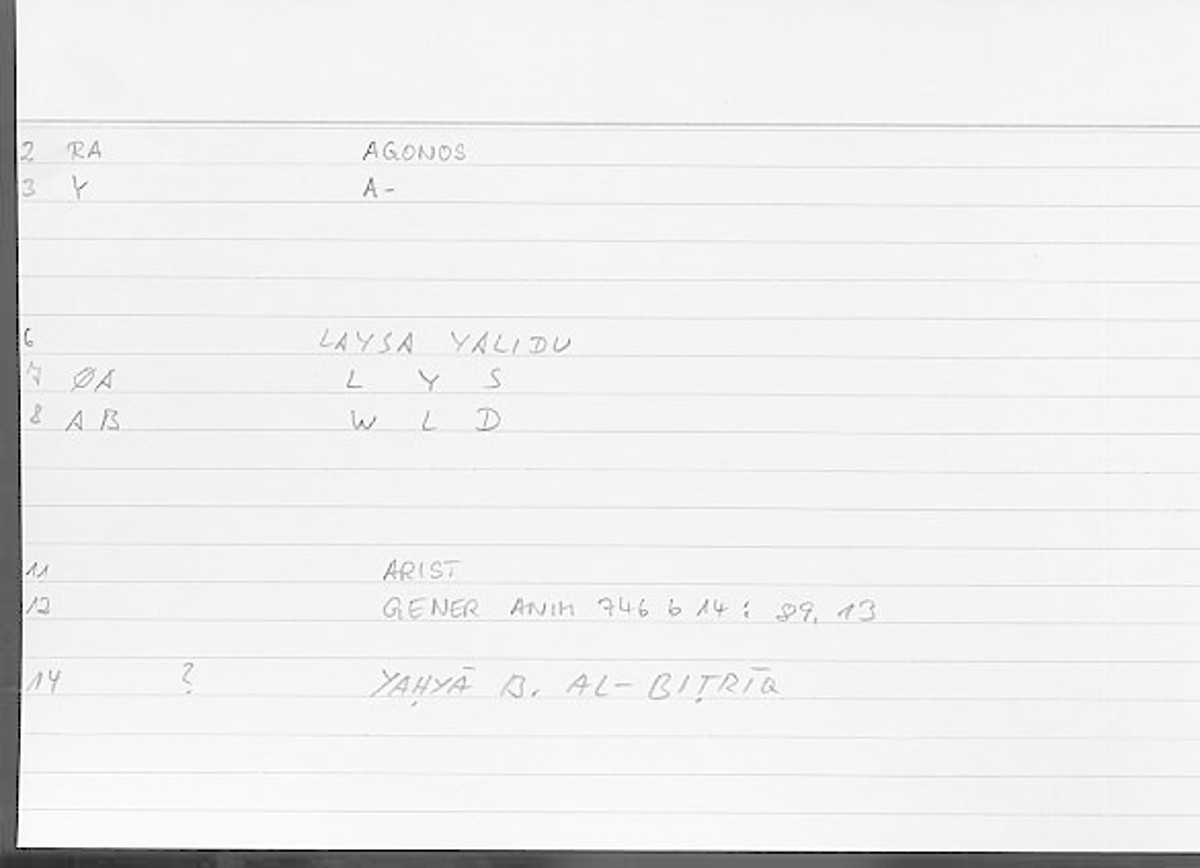 2 RA AGONOS
3 Y A-
6 LAYSA YALIDU
7 ØA L Y S
8 A B W L D
11 ARIST
12 GENER ANIM 746 b 14 : 89, 13
14 ? YAḤYĀ B. AL-BIṬRĪQ